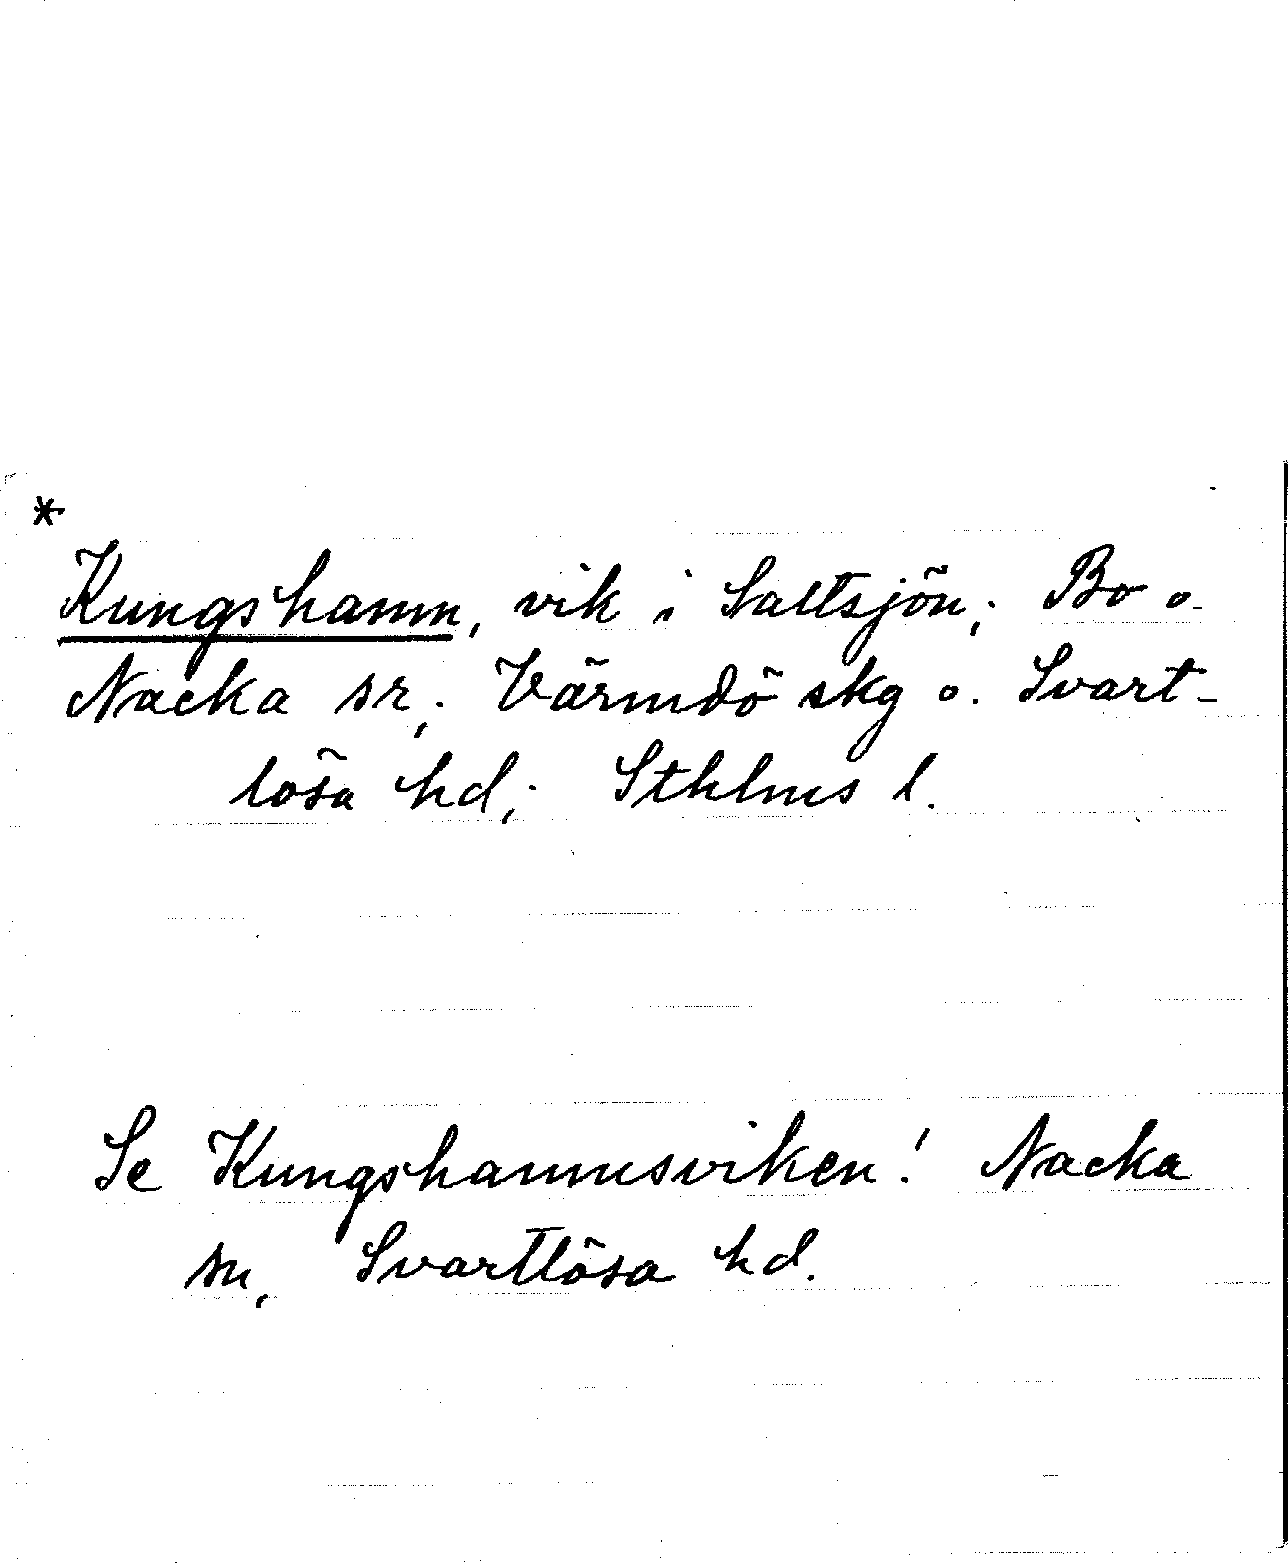 *
Kungshamn, vik i Saltsjön; Bo o.
Nacka sr; Värmdö skg o. Svart-
lösa hd; Sthlms l.
Se Kungshamnsviken! Nacka
sn, Svartlösa hd.